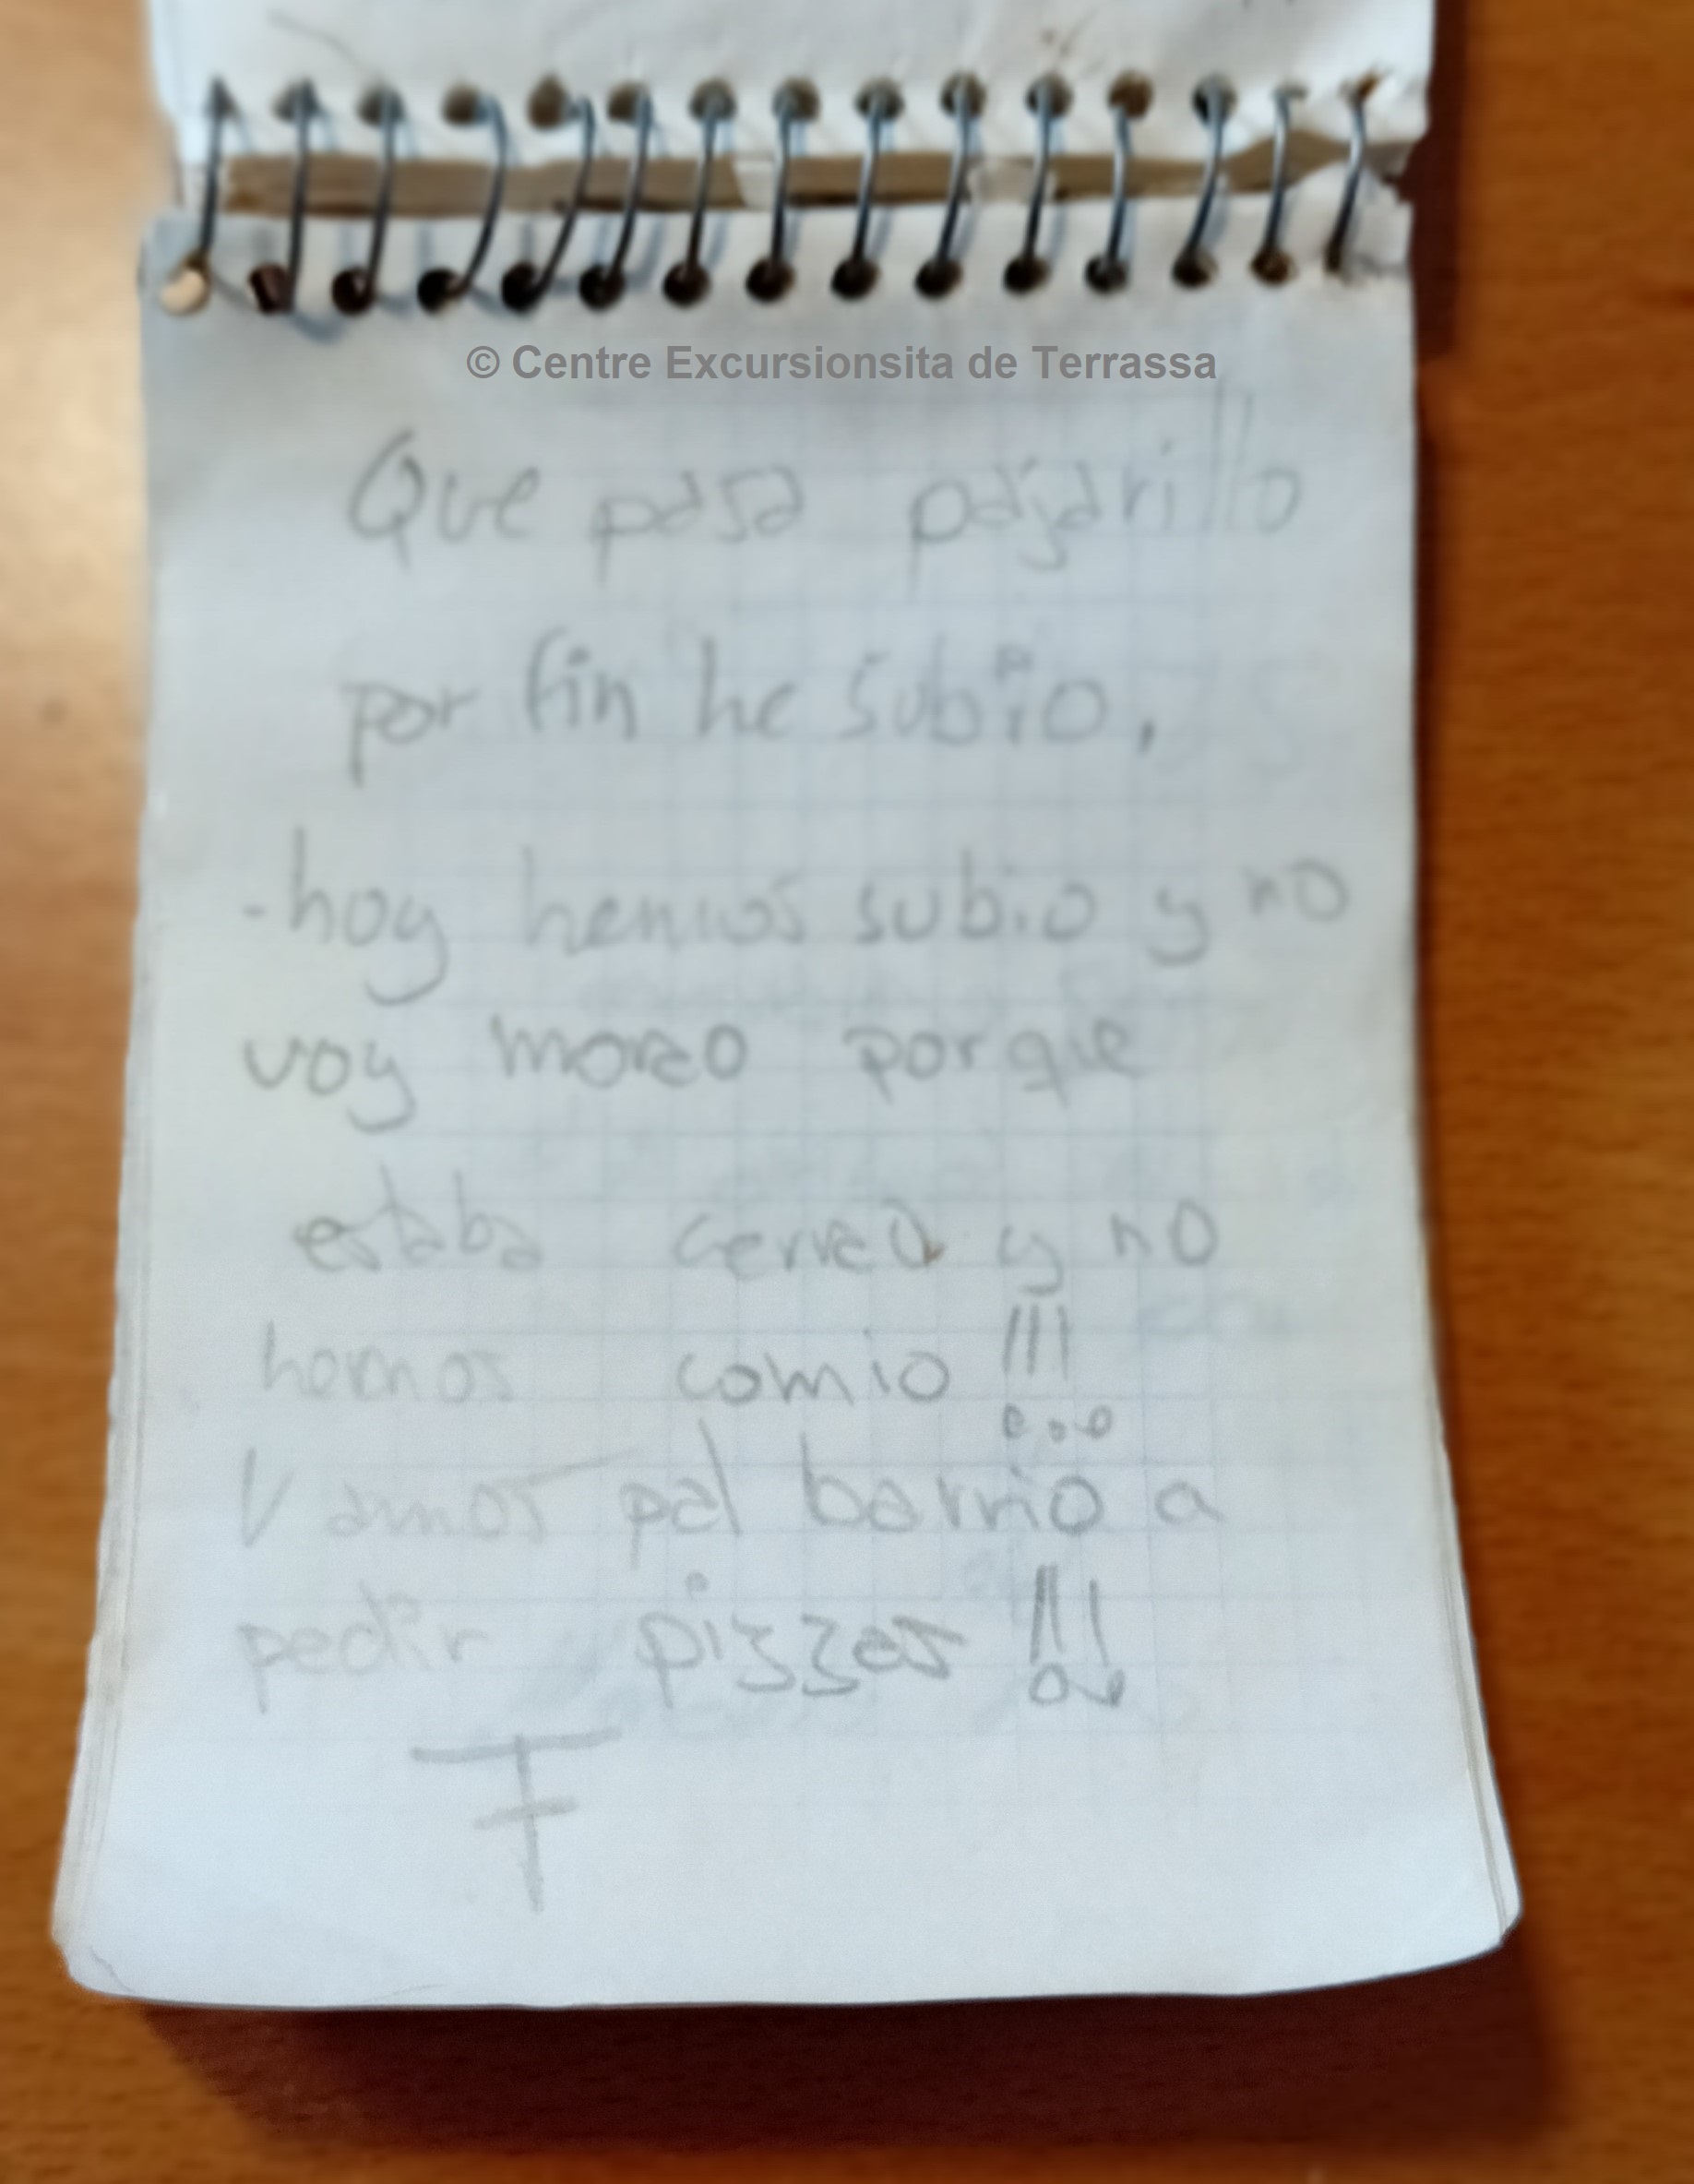 © Centre Excursionsita de Terrassa
Que pasa pajarillo
por fin he subio,
-hoy hemos subio y no
voy morao porque
estaba cerrao y no
hemos comio !!!
Vamos pal barrio a
pedir pizzas !!!
F